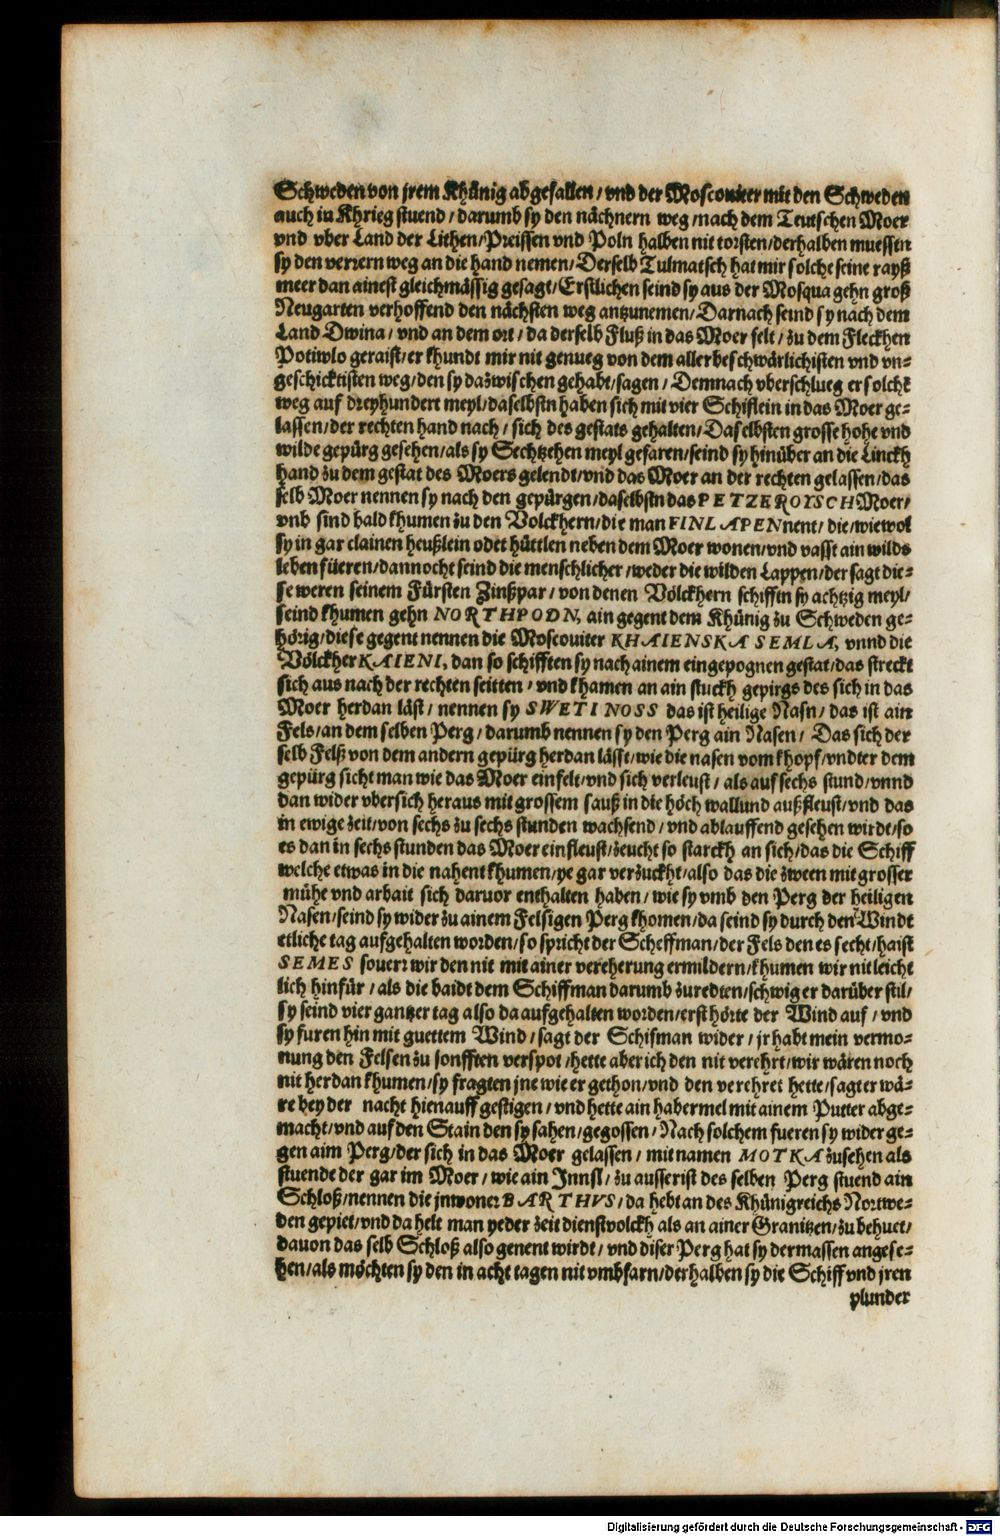 Schweden von jrem Khünig abgefallen / vnd der Moscouiter mit den Schweden
auch in Khrieg stuend / darumb sy den nächnern weg / nach dem Teutschen Moer
vnd vber Land der Lithen / Preissen vnd Poln halben nit torsten / derhalben muessen
sy den verrern weg an die hand nemen / Derselb Tulmatsch hat mir solche seine rayß
meer dan ainest gleichmässig gesagt / Erstlichen seind sy aus der Mosqua gehn groß
Neugarten verhoffend den nächsten weg antzunemen / Darnach seind sy nach dem
Land Dwina / vnd an dem ort / da derselb Fluß in das Moer felt / zu dem Fleckhen
Potiwlo geraist / er khundt mir nit genueg von dem allerbeschwärlichisten vnd vn-
geschicktisten weg / den sy dazwischen gehabt / sagen / Demnach vberschlueg er solchē
weg auf dreyhundert meyl / daselbstn haben sich mit vier Schiflein in das Moer ge-
lassen / der rechten hand nach / sich des gestats gehalten / Daselbsten grosse hohe vnd
wilde gepürg gesehen / als sy Sechtzehen meyl gefaren / seind sy hinüber an die Linckh
hand zu dem gestat des Moers gelendt / vnd das Moer an der rechten gelassen / das
selb Moer nennen sy nach den gepürgen / daselbstn das PETZEROYSCH Moer /
vnb sind bald khumen zu den Volckhern / die man FINLAPEN nent / die / wiewol
sy in gar clainen heußlein odet hüttlen neben dem Moer wonen / vnd vasst ain wilds
leben füeren / dannocht seind die menschlicher / weder die wilden Lappen / der sagt die-
se weren seinem Fürsten Zinßpar / von denen Völckhern schiffin sy achtzig meyl /
seind khumen gehn NORTHPODN, ain gegent dem Khünig zu Schweden ge-
hörig / diese gegent nennen die Moscouiter KHAIENSKA SEMLA, vnnd die
Völckher KAIENI, dan so schifften sy nach ainem eingepognen gestat / das streckt
sich aus nach der rechten seitten / vnd khamen an ain stuckh gepirgs des sich in das
Moer herdan läst / nennen sy SWETI NOSS das ist heilige Nasn / das ist ain
Fels / an dem selben Perg / darumb nennen sy den Perg ain Nasen / Das sich der
selb Felß von dem andern gepürg herdan lässt / wie die nasen vom khopf / vndter dem
gepürg sicht man wie das Moer einfelt / vnd sich verleust / als auf sechs stund / vnnd
dan wider vbersich heraus mit grossem sauß in die höch wallund außfleust / vnd das
in ewige zeit / von sechs zu sechs stunden wachsend / vnd ablauffend gesehen wirdt / so
es dan in sechs stunden das Moer einfleust / zeucht so starckh an sich / das die Schiff
welche etwas in die nahent khumen / ye gar verzuckht / also das die zween mit grosser
mühe vnd arbait sich daruor enthalten haben / wie sy vmb den Perg der heiligen
Nasen / seind sy wider zu ainem Felsigen Perg khomen / da seind sy durch den Windt
etliche tag aufgehalten worden / so spricht der Scheffman / der Fels den es secht / haist
SEMES souerr wir den nit mit ainer vereherung ermildern / khumen wir nit leicht
lich hinfür / als die baidt dem Schiffman darumb zuredten / schwig er darüber stil /
sy seind vier gantzer tag also da aufgehalten worden / erst hörte der Wind auf / vnd
sy furen hin mit guettem Wind / sagt der Schifman wider / jr habt mein vermo-
nung den Felsen zu sonfften verspot / hette aber ich den nit verehrt / wir wären noch
nit herdan khumen / sy fragten jne wie er gethon / vnd den verehret hette / sagt er wä-
re bey der nacht hienauff gestigen / vnd hette ain habermel mit ainem Putter abge-
macht / vnd auf den Stain den sy sahen / gegossen / Nach solchem fueren sy wider ge-
gen aim Perg / der sich in das Moer gelassen / mit namen MOTKA zusehen als
stuende der gar im Moer / wie ain Jnnsl / zu ausserist des selben Perg stuend ain
Schloß / nennen die jnwoner BARTHVS / da hebt an des Khünigreichs Nortwe-
den gepiet / vnd da helt man yeder zeit dienstvolckh als an ainer Granitzen / zu behuet /
dauon das selb Schloß also genent wirdt / vnd diser Perg hat sy dermassen angese-
hen / als möchten sy den in acht tagen nit vmbfarn / derhalben sy die Schiff vnd jren
plunder
Digitalisierung gefördert durch die Deutsche Forschungsgemeinschaft - DFG